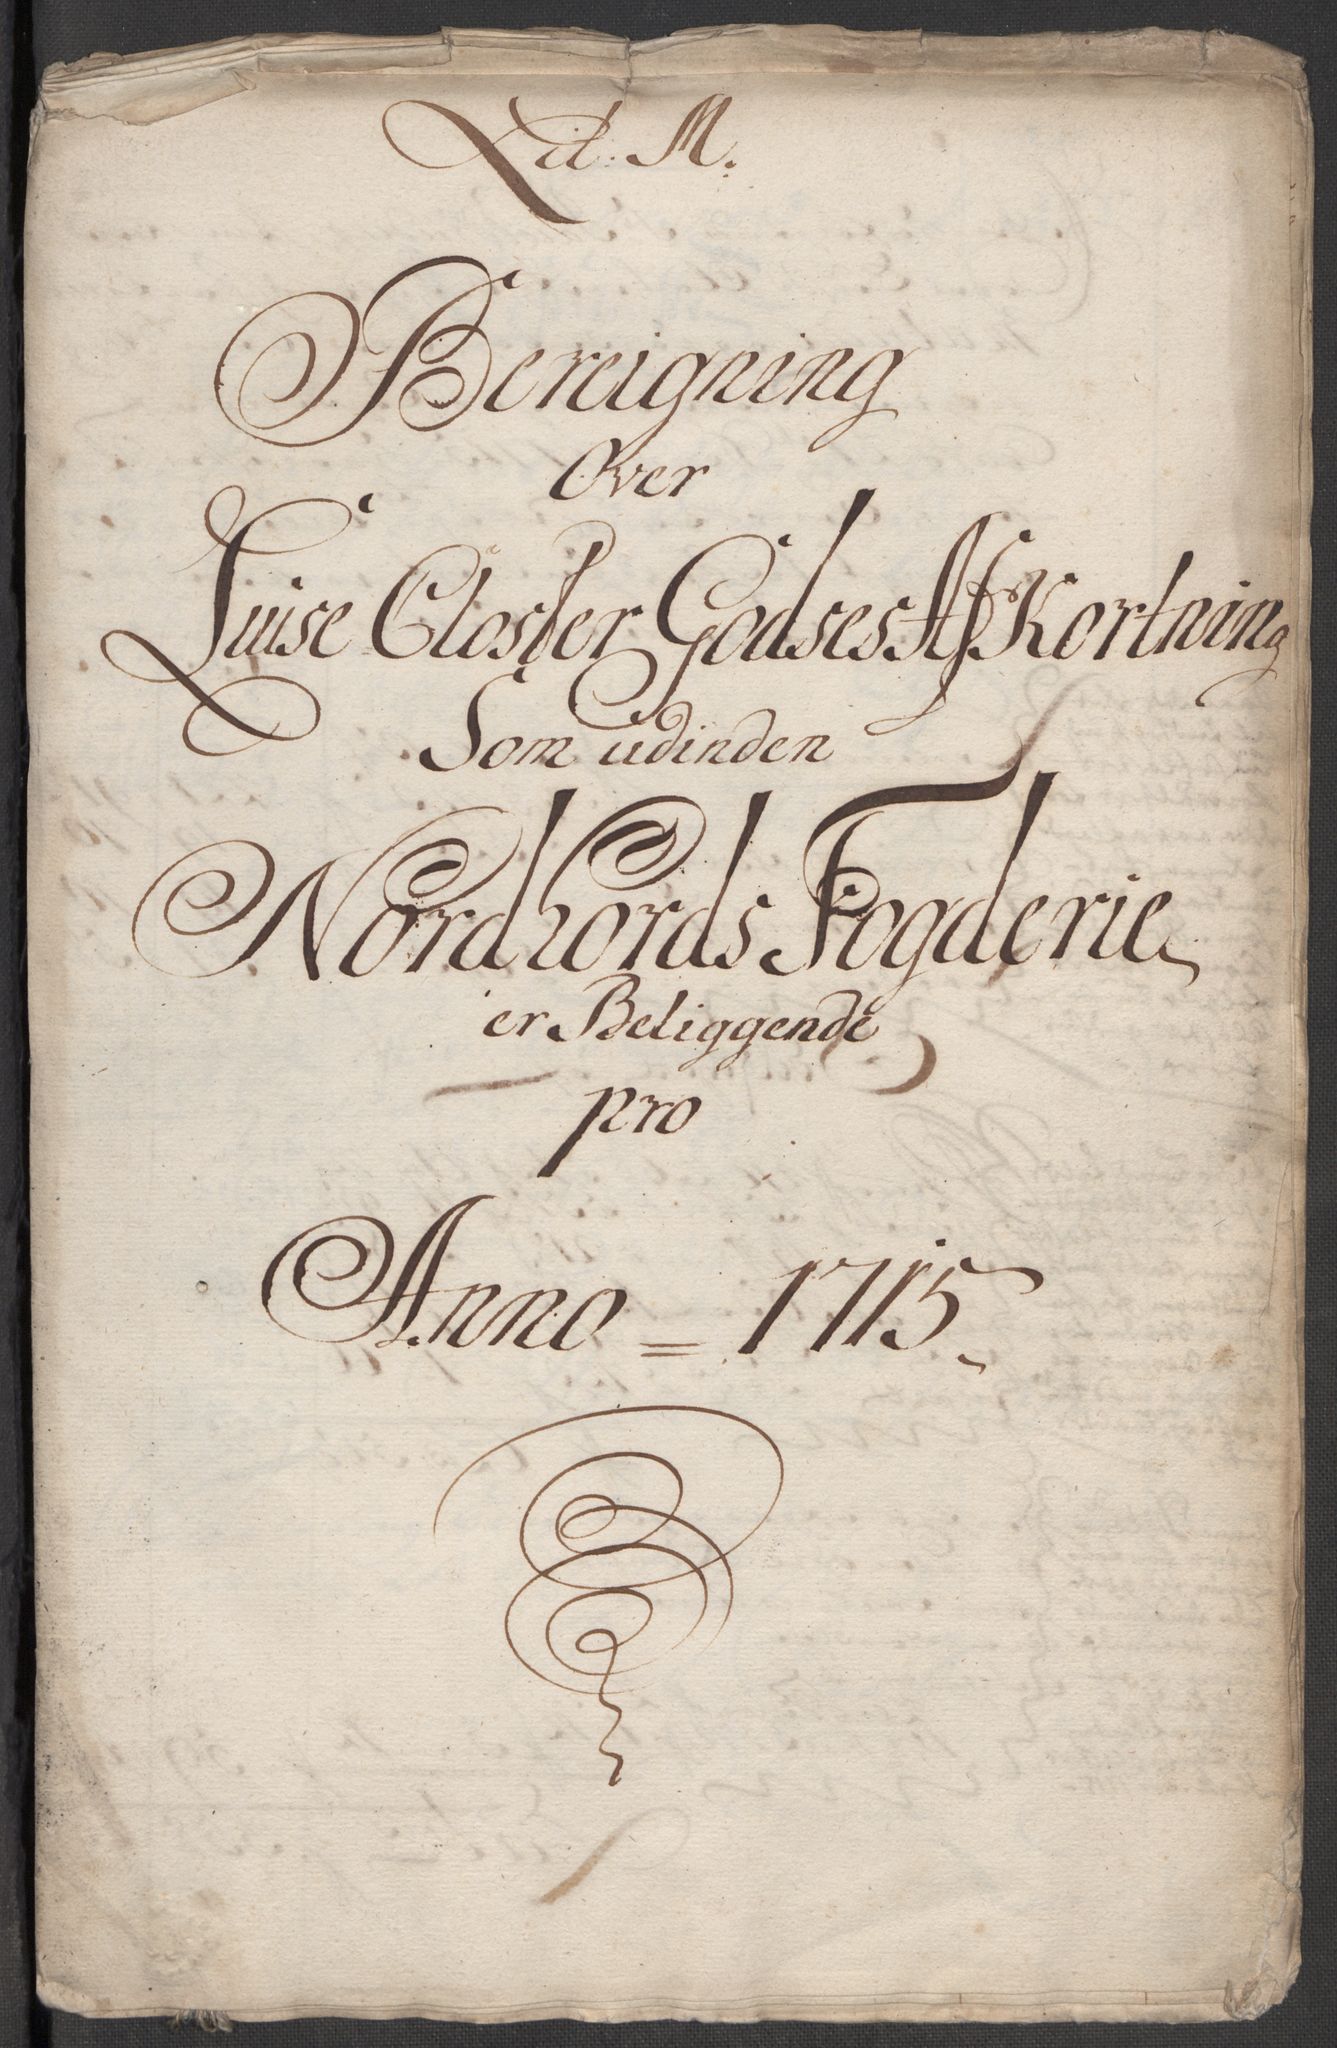 Lit: M.
Bereigning
Over
Luise Closter Godses AfKortning
Som udinden
Nordhords Fogderie
er Beliggende
pro
Anno = 1715